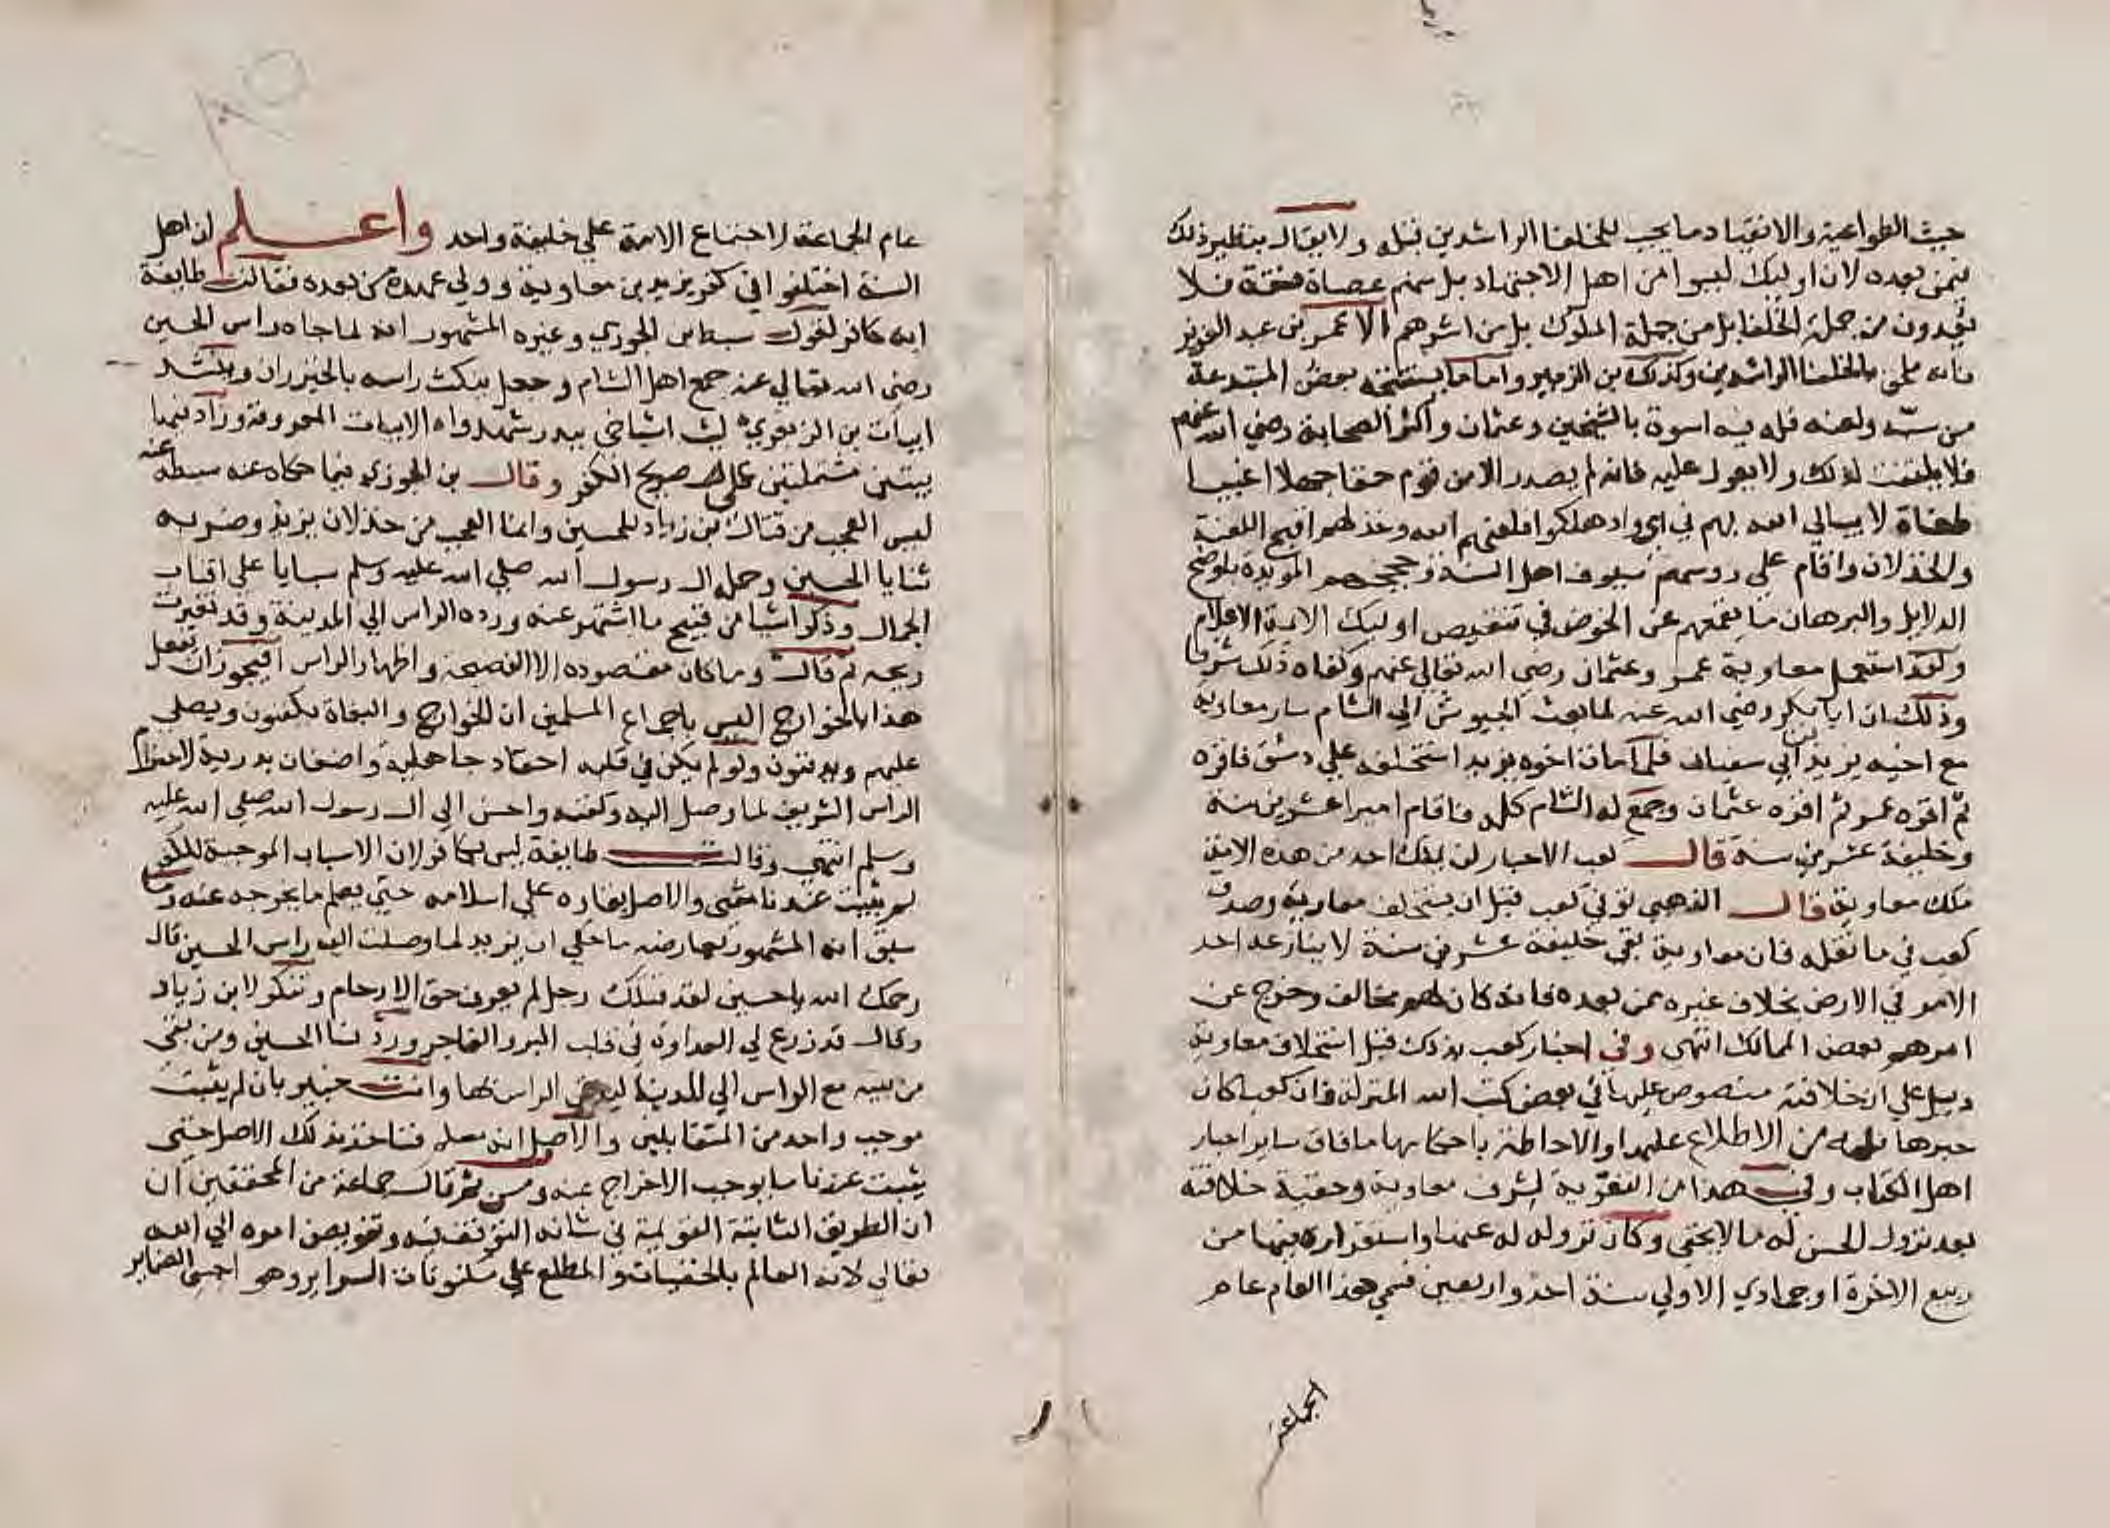 حيث الطواعية والانقياد ما يجب للخلفا الراشدين قبله ولا يقال بنظير ذلك
فيمن بعده لان اوليك ليسوا من اهل الاجتهاد بل منهم عصاة فسقة فلا
يعدون من جملة الخلفا بل من جملة الملوك بل من اشرهم الا عمر بن عبد العزيز
فانه ملحق بالخلفا الراشدين وكذلك بن الزبير واما ما يستبيحه بعض المبتدعة
من سبه ولعنه فله فيه اسوة بالشيخين وعثمان واكثر الصحابة رضي الله عنهم
فلا يلتفت لذلك ولا يعول عليه فانه لم يصدر الا من قوم حمقا جهلا اغبيا
طغاة لا يبالي الله بهم في اي واد هلكوا فلعنهم الله وخذلهم اقبح اللعنة
والخذلان واقام على روسهم سيوف اهل السنة وحججهم المويدة باوضح
الدلايل والبرهان ما يقمعهم عن الخوض في تنقيص اوليك الايمة الاعلام
ولقد استعمل معاوية عمر وعثمان رضي الله تعالى عنهم وكفاه ذلك شرفا
وذلك ان ابا بكر رضي الله عنه لما بعث الجيوش الى الشام سار معاوية
مع اخيه يزيد بن ابي سفيان فلما مات اخوه يزيد استخلفه على دمشق فاقره
ثم اقره عمر ثم اقره عثمان وجمع له الشام كله فاقام اميرا عشرين سنة
وخليفة عشرين سنة قال كعب الاحبار لن يملك احد من هذه الامة
ملك معاوية قال الذهبي توفي كعب قبل ان يستخلف معاوية وصدق
كعب في ما نقله فان معاوية بقي خليفة عشرين سنة لا ينازعه احد
الامر في الارض بخلاف غيره ممن بعده فانه كان لهم مخالف وخرج عن
امرهم بعض الممالك انتهى وفي اخبار كعب بذلك قبل استخلاف معاوية
دليل على ان خلافته منصوص عليها في بعض كتب الله المنزلة فان كعبا كان
حبرها فله من الاطلاع عليها والاحاطة باحكامها ما فاق ساير احبار
اهل الكتاب وفي هذا من التقوية لشرف معاوية وحقية خلافته
بعد نزول الحسن له ما لا يخفى وكان نزوله له عنها واستقراره فيها من
ربيع الاخرة او جمادي الاولى سنة احد واربعين فسمي هذا العام عام
الجماعة
عام الجماعة لاجتماع الامة على خليفة واحد واعلم ان اهل
السنة اختلفوا في كفر يزيد بن معاوية وولي عهده من بعده فقالت طايفة
انه كافر لقول سبط بن الجوزي وغيره المشهور انه لما جاه راس الحسين
رضي الله تعالى عنه جمع اهل الشام وجعل ينكت راسه بالخيزران وينشد
ابيات بن الزبعري ليت اشياخي ببدر شهدوا الابيات المعروفة وزاد فيها
بيتين مشتملين على صريح الكفر وقال بن الجوزي فيما حكاه عنه سبطه
ليس العجب من قتال بن زياد للحسين وانما العجب من خذلان يزيد وضربه
ثنايا الحسين وحمله ال رسول الله صلى الله عليه وسلم سبايا على اقتاب
الجمال وذكر اشيا من قبيح ما اشتهر عنه ورده الراس الى المدينة وقد تغيرت
ريحه ثم قال وما كان مقصوده الا الفضيحة واظهار الراس افيجوز ان يفعل
هذا بالخوارج اليس باجماع المسلمين ان الخوارج والبغاة يكفنون ويصلى
عليهم ويدفنون ولو لم يكن في قلبه احقاد جاهلية واضغان بدرية لاحترم
الراس الشريف لما وصل اليه وكفنه واحسن الى ال رسول الله صلى الله عليه
وسلم انتهى وقالت طايفة ليس بكافر لان الاسباب الموجبة للكفر
لم يثبت عندنا منها شي والاصل بقاوه على اسلامه حتى يعلم ما يخرجه عنه وما
سبق انه المشهور يعارضه ما حكي ان يزيد لما وصلت اليه راس الحسين قال
رحمك الله يا حسين لقد قتلك رجل لم يعرف حق الارحام وتنكر لابن زياد
وقال قد زرع لي العداوة في قلب البر والفاجر ورد نسا الحسين ومن بقي
من بنيه مع الراس الى المدينة ليدفن الراس بها وانت خبير بان لم يثبت
موجب واحد من المتقابلين والاصل انه مسلم فناخذ بذلك الاصل حتى
يثبت عندنا ما يوجب الاخراج عنه ومن ثم قال جماعة من المحققين ان
ان الطريق الثابتة القويمة في شانه التوقف فيه وتفويض امره الى الله
تعالى لانه العالم بالخفيات والمطلع على مكنونات السراير وهو اجس الضماير